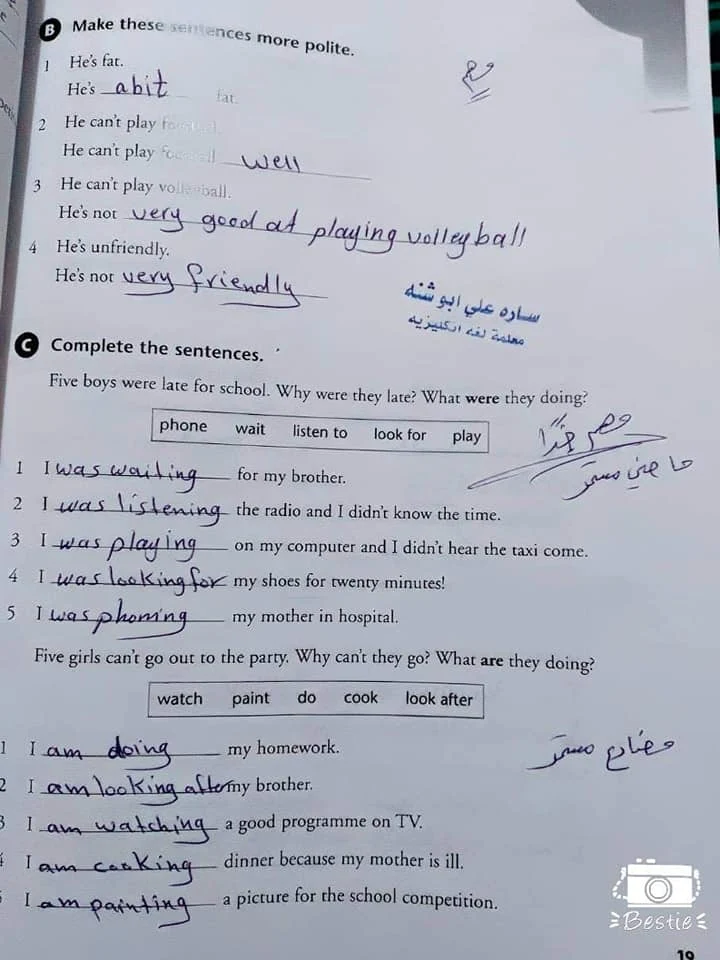 B Make these sentences more polite.
1 He's fat.
He's abit fat.
مهم
2 He can't play football.
He can't play football well
3 He can't play volleyball.
He's not very good at playing volleyball
4 He's unfriendly.
He's not very friendly
ساره علي ابو شنه
معلمة لغه انكليزيه
C Complete the sentences.
Five boys were late for school. Why were they late? What were they doing?
phone wait listen to look for play
مهم جداً
ماضي مستمر
1 I was waiting for my brother.
2 I was listening the radio and I didn't know the time.
3 I was playing on my computer and I didn't hear the taxi come.
4 I was looking for my shoes for twenty minutes!
5 I was phoning my mother in hospital.
Five girls can't go out to the party. Why can't they go? What are they doing?
watch paint do cook look after
مضارع مستمر
1 I am doing my homework.
2 I am looking after my brother.
3 I am watching a good programme on TV.
4 I am cooking dinner because my mother is ill.
I am painting a picture for the school competition.
Bestie
19